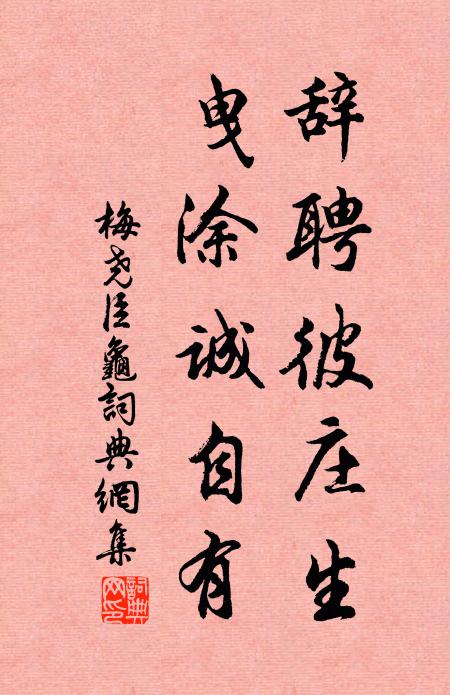 辞聘彼庄生
曳涂诚自有
梅尧臣龜詞典網集
詞典网印